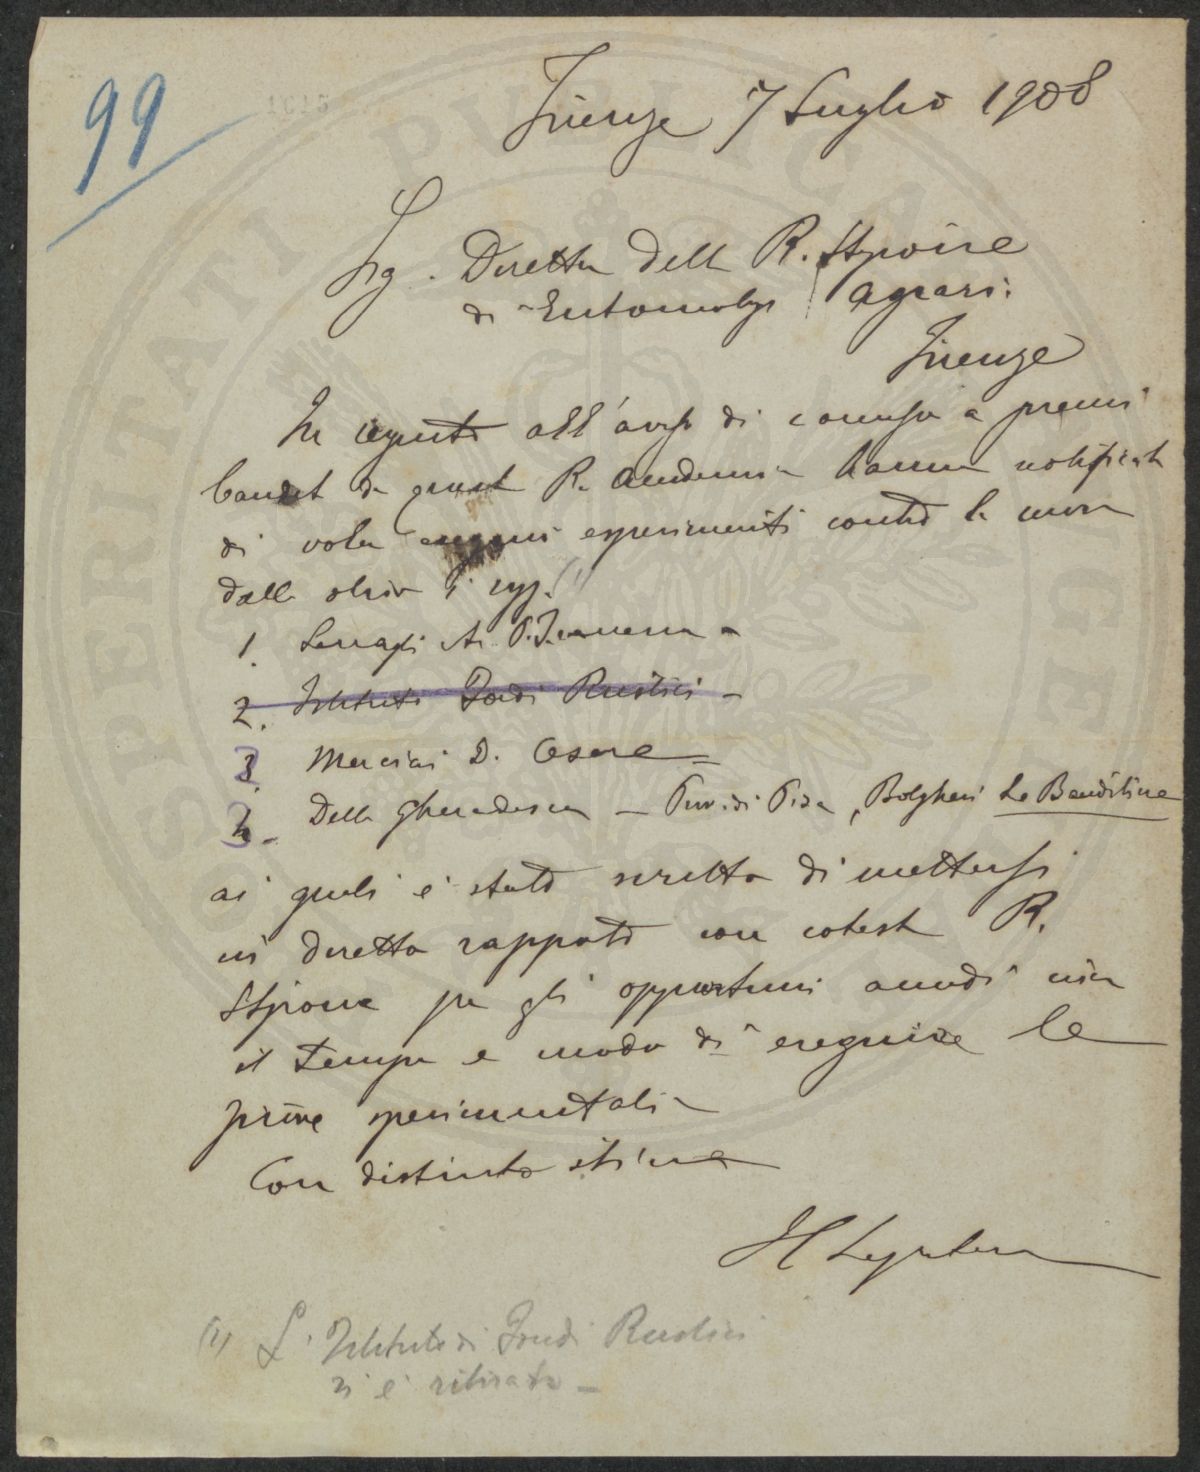 99
Firenze 7 Luglio 1908
Sig. Direttore della R. Stazione
di Entomologia Agraria
Firenze
In seguito all'avviso di concorso a premi
bandito da questa R. Accademia hanno notificato
di voler eseguire esperimenti contro la mosca
delle olive i sigg. (1)
1. A. P.
2. Istituto Fondi Rustici -
3. Marciai D. Cesare
4. Della Gherardesca - Prov. di Pisa, Bolgheri La Banditina
ai quali è stato scritto di mettersi
in diretto rapporto con cotesta R.
Stazione per gli opportuni accordi circa
il tempo e modo di eseguire le
prove sperimentali -
Con distinta stima
Il Segretario
(1) L'Istituto di Fondi Rustici
si è ritirato -